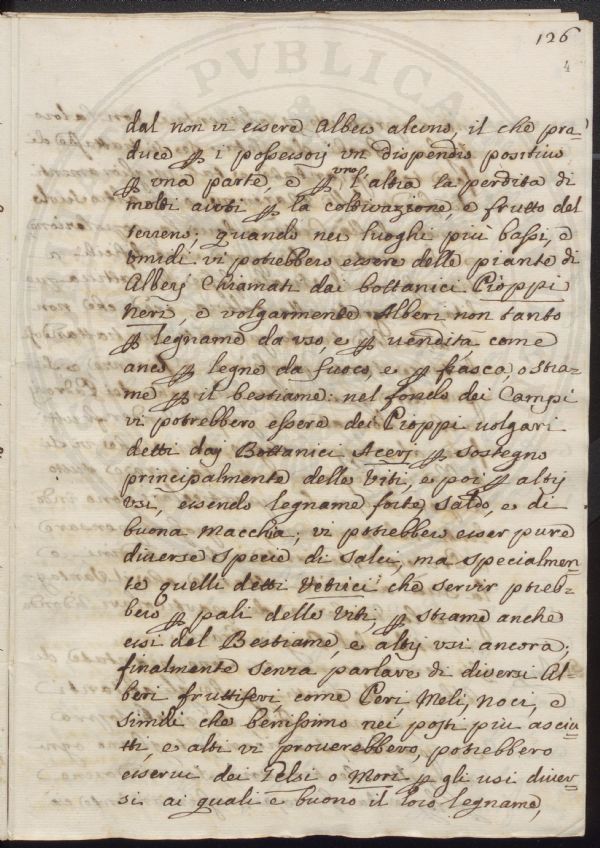 126
4
dal non vi essere Albero alcuno, il che pro-
duce p i possessorj vn dispendio positivo
p vna parte, e p l'altra la perdita di
molti aiuti p la coltivazione, e frutto del
terreno; quando nei luoghi più bassi, e
vmidi vi potrebbero essere delle piante di
Alberj Chiamati dai bottanici Pioppi
Neri, e volgarmente Alberi non tanto
p legname da vso, e p uendita come
anco p legne da fuoco, e p frasca o stra-
me p il bestiame: nel fondo dei Campi
vi potrebbero essere dei Pioppi uolgari
detti daj Bottanici Acerj p sostegno
principalmente delle Viti, e poj p altrj
vsi, essendo legname forte, saldo, e di
buona macchia; vi potrebbero esser pure
diverse specie di salci, ma specialmen-
te quelli detti Vetrici che servir potreb-
bero p pali delle Viti, p strame anche
essi del Bestiame, e altrj vsi ancora;
finalmente senza parlare di diversi Al-
beri fruttiferi come Peri, Meli, Noci, e
simili che benissimo nei posti più asciu-
tti, e alti vi prouerebbero, potrebbero
esservi dei Gelsi o Mori p gli usi diver-
si ai quali è buono il loro legname,
PVBLICA